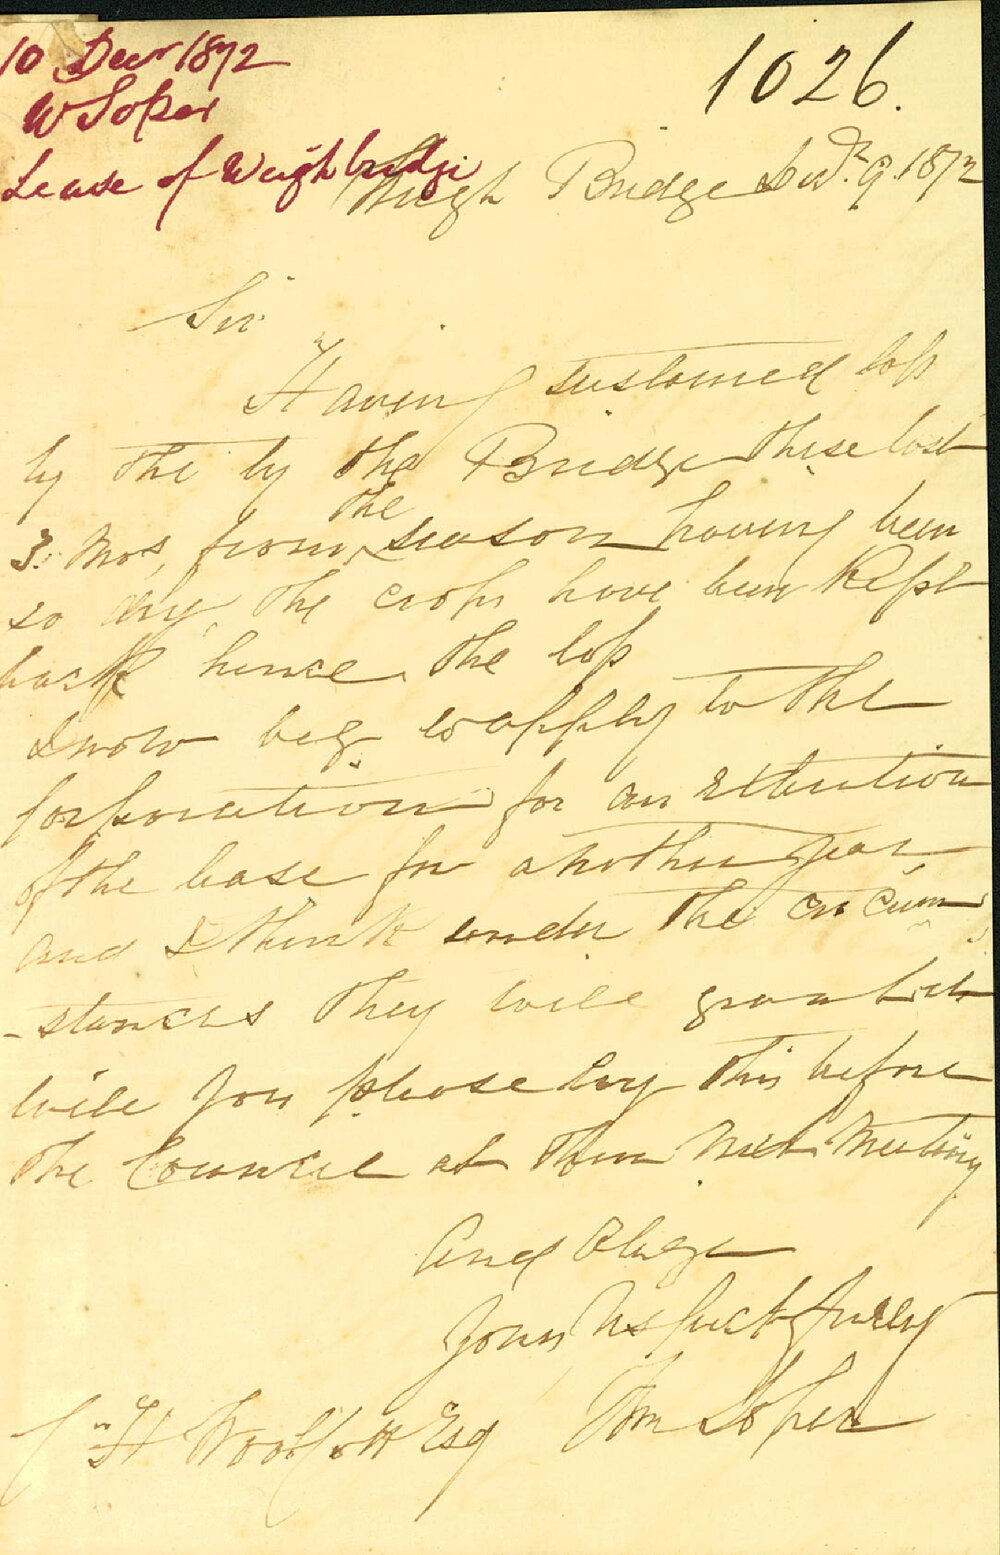 10 Decr 1872
W Soper
Lease of Weighbridge
1026.
Weigh Bridge Decr. 9. 1872
Sir
Having sustained loss
by the by the Bridge these last
3. Mos, from the season having been
so dry, the crops have been Kept
back hence the loss
I now beg to apply to the
Corporation for an Extention
of the lease for another year
and I think under the circum
-stances they will grant it
will you please lay this before
the Council at their next Meeting
And Oblige
Yours Respectfully
Wm Soper
C H Woolcott Esq